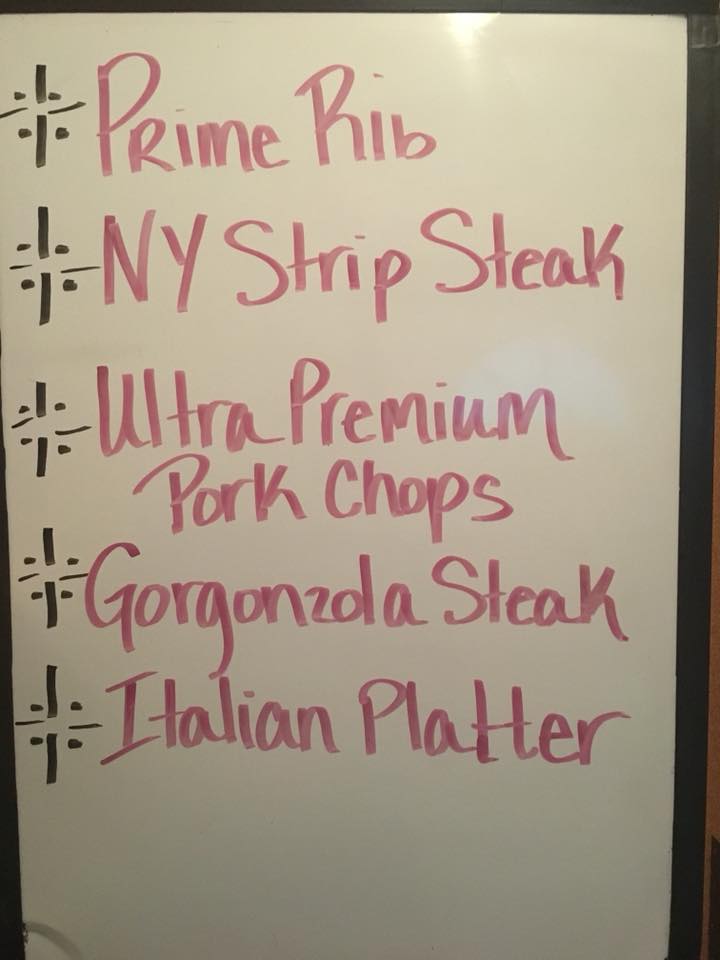 Prime Rib
NY Strip Steak
Ultra Premium
Pork Chops
Gorgonzola Steak
Italian Platter